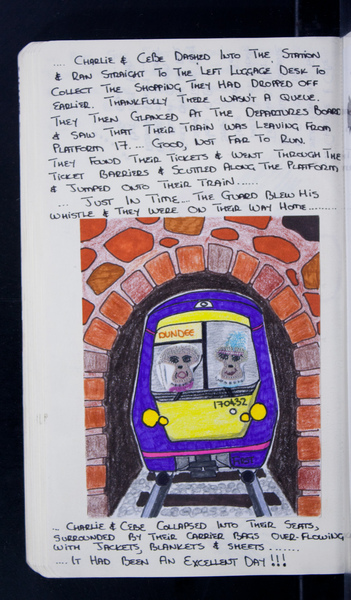 .... Charlie & CeBe Dashed Into The Station
& Ran Straight To The Left Luggage Desk To
Collect The Shopping They Had Dropped Off
Earlier. Thankfully There Wasn't A Queue.
They Then Glanced At The Departures Board
& Saw That Their Train Was Leaving From
Platform 17. ... Good, Not Far To Run.
They Found Their Tickets & Went Through The
Ticket Barriers & Scuttled Along The Platform
& Jumped Onto Their Train......
... Just In Time... The Guard Blew His
Whistle & They Were On Their Way Home.........
DUNDEE
170432
... Charlie & CeBe Collapsed Into Their Seats,
Surrounded By Their Carrier Bags Over-Flowing
With Jackets, Blankets & Sheets .......
.... It Had Been An Excellent Day!!!